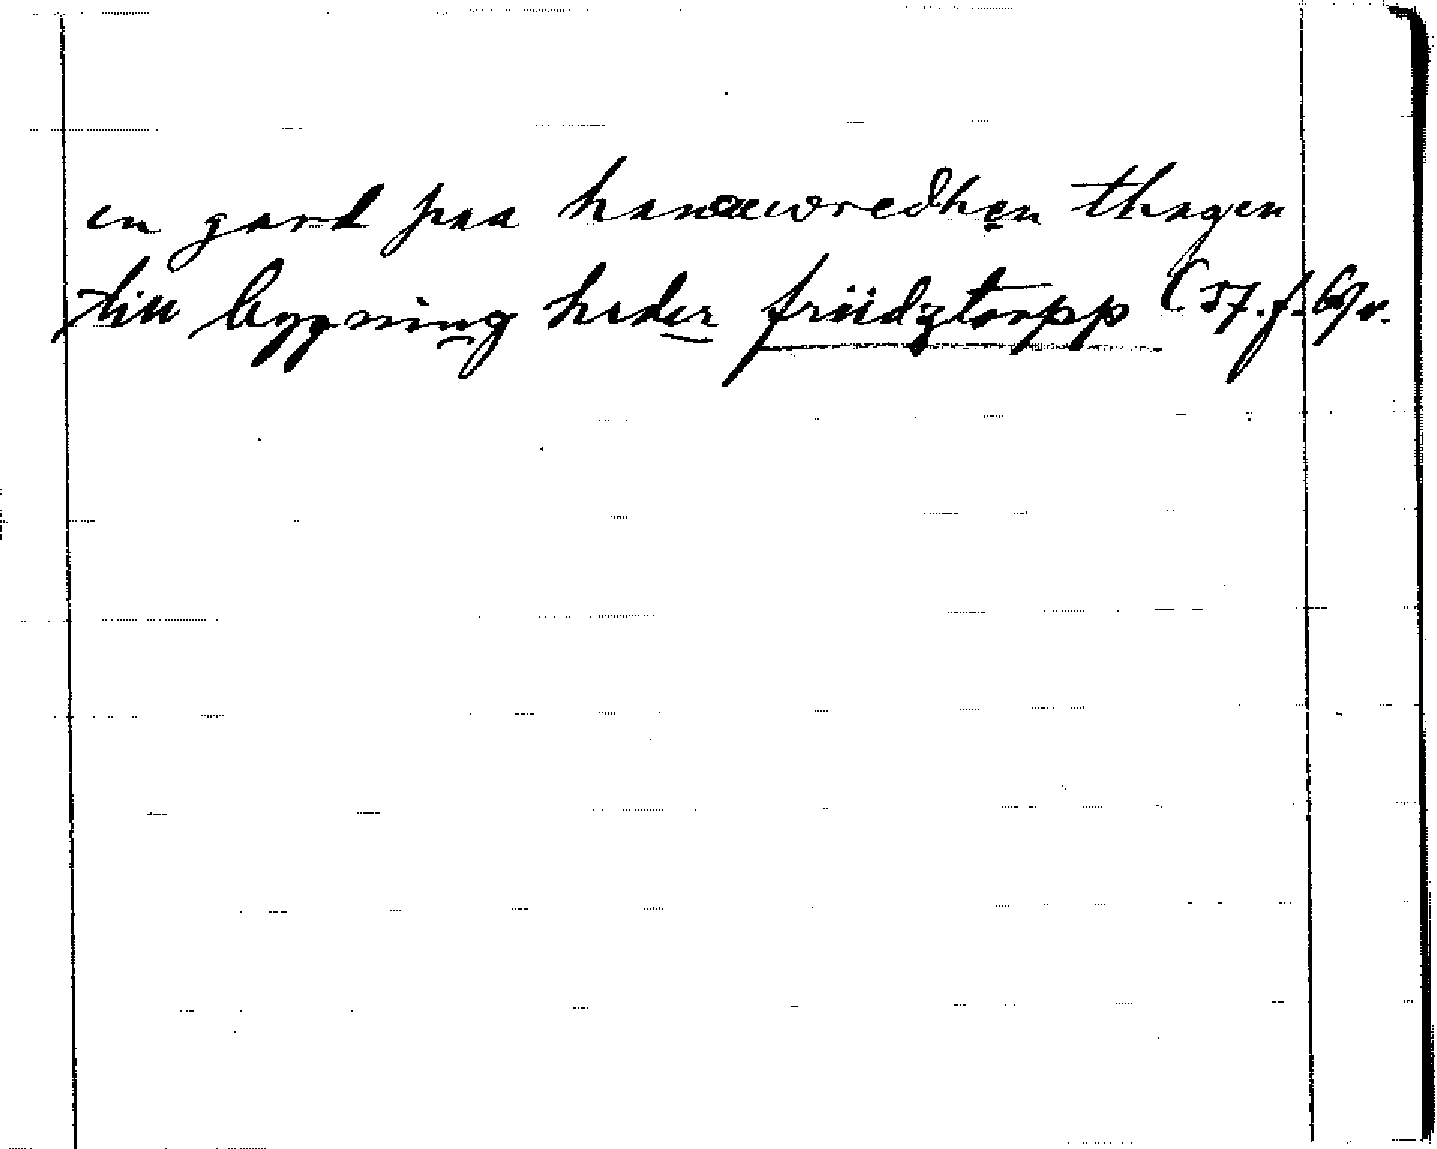 en gard paa hanæwredhen thagen
till bygning heder friidztorpp (37. f. 69 v.